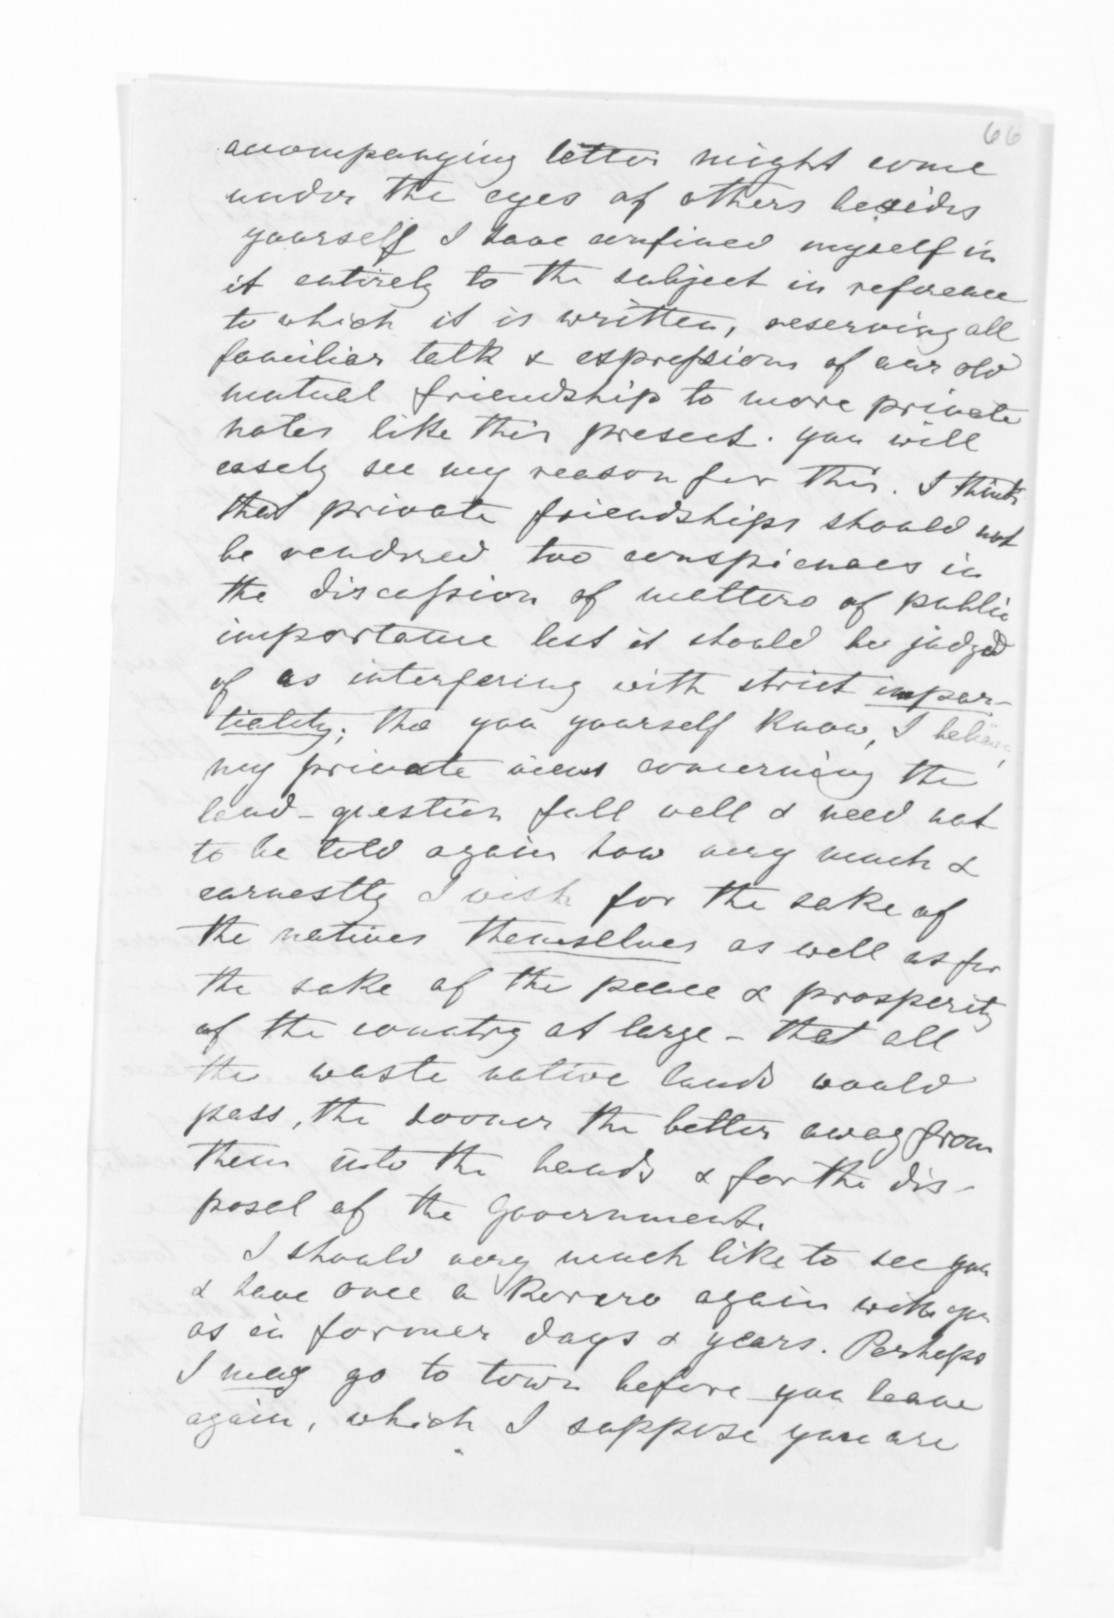 66
accompanying letter might come
under the eyes of others besides
yourself I have confined myself in
it entirely to the subject in reference
to which it is written, reserving all
familiar talk & expressions of our old
mutual friendship to more private
notes like this present. You will
easely see my reason for this. I think
that private friendships should not
be rendred too conspicuous in
the discussion of matters of public
importance lest it should be judged
of as interfering with strict impar-
tiality; tho you yourself know, I believe,
my private views concerning the
land-question full well & need not
to be told again how very much &
earnestly I wish for the sake of
the natives themselves as well as for
the sake of the peace & prosperity
of the country at large - that all
the waste native lands would
pass, the sooner the better away from
them into the hands & for the dis-
posal of the Government.
I should very much like to see you
& have once a Korero again with you
as in former days & years. Perhaps
I may go to town before you leave
again, which I suppose you are